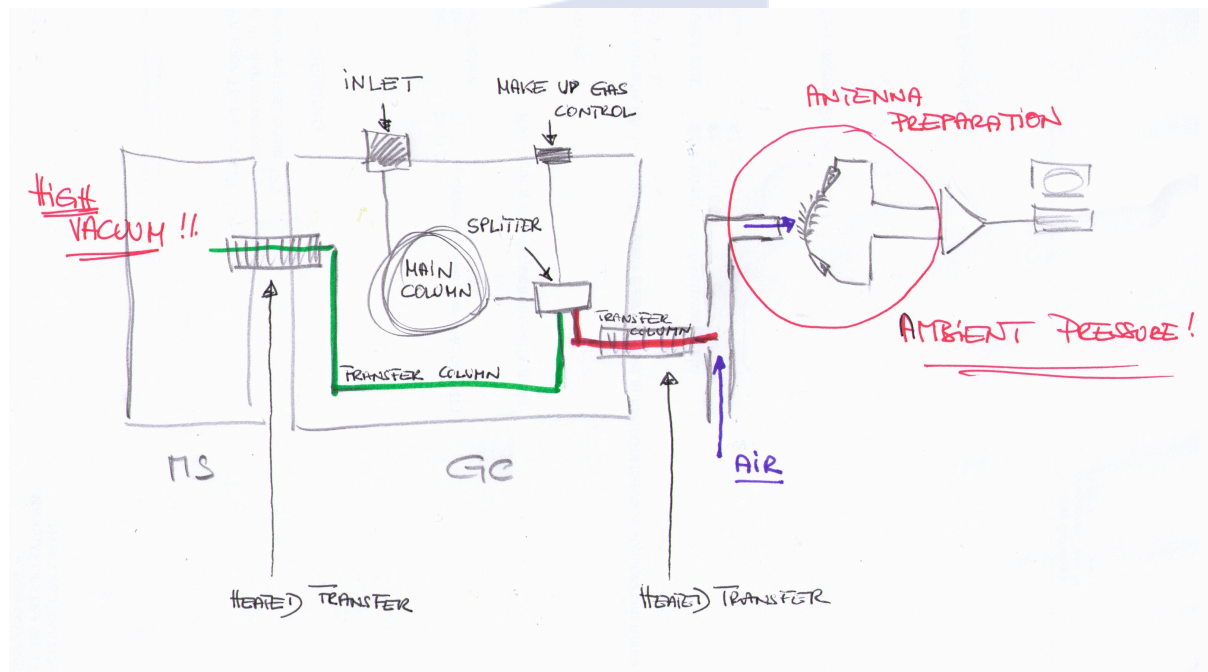 INLET
MAKE UP GAS
CONTROL
ANTENNA
PREPARATION
HIGH
VACUUM !!
SPLITTER
MAIN
COLUMN
TRANSFER
COLUMN
AMBIENT PRESSURE!
TRANSFER COLUMN
MS
GC
AIR
HEATED TRANSFER
HEATED TRANSFER